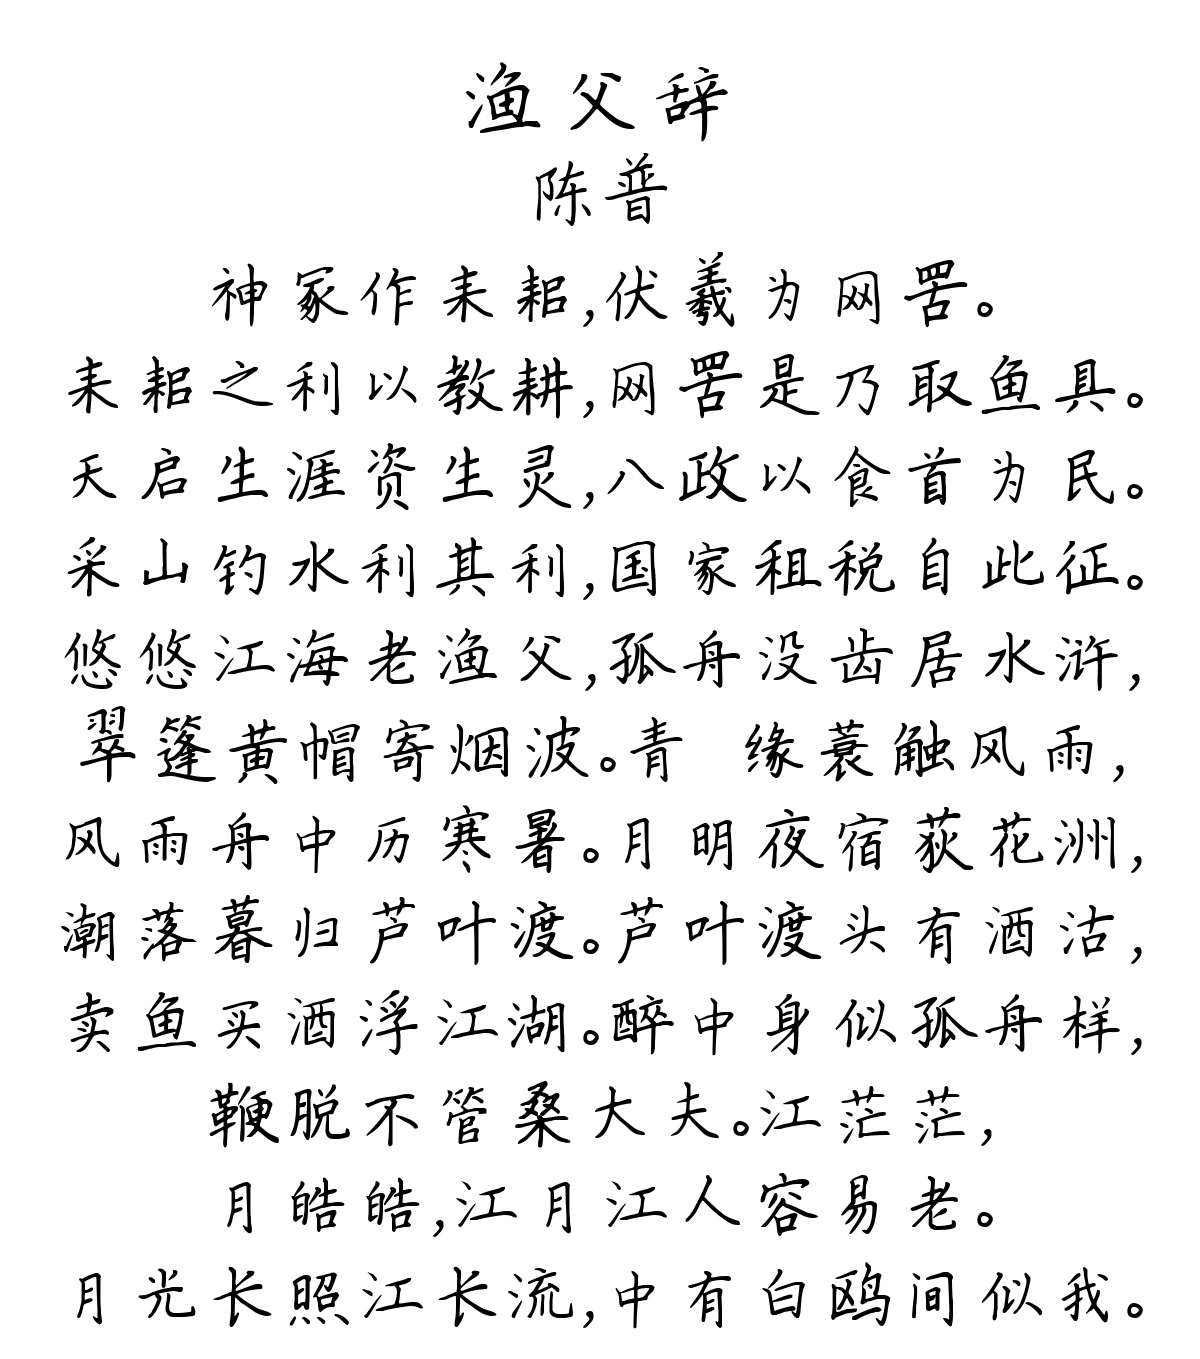 渔父辞
陈普
神冢作耒耜,伏羲为网罟。
耒耜之利以教耕,网罟是乃取鱼具。
天启生涯资生灵,八政以食首为民。
采山钓水利其利,国家租税自此征。
悠悠江海老渔父,孤舟没齿居水浒,
翠篷黄帽寄烟波。青 缘蓑触风雨,
风雨舟中历寒暑。月明夜宿荻花洲,
潮落暮归芦叶渡。芦叶渡头有酒沽,
卖鱼买酒浮江湖。醉中身似孤舟样,
鞭脱不管桑大夫。江茫茫,
月皓皓,江月江人容易老。
月光长照江长流,中有白鸥间似我。